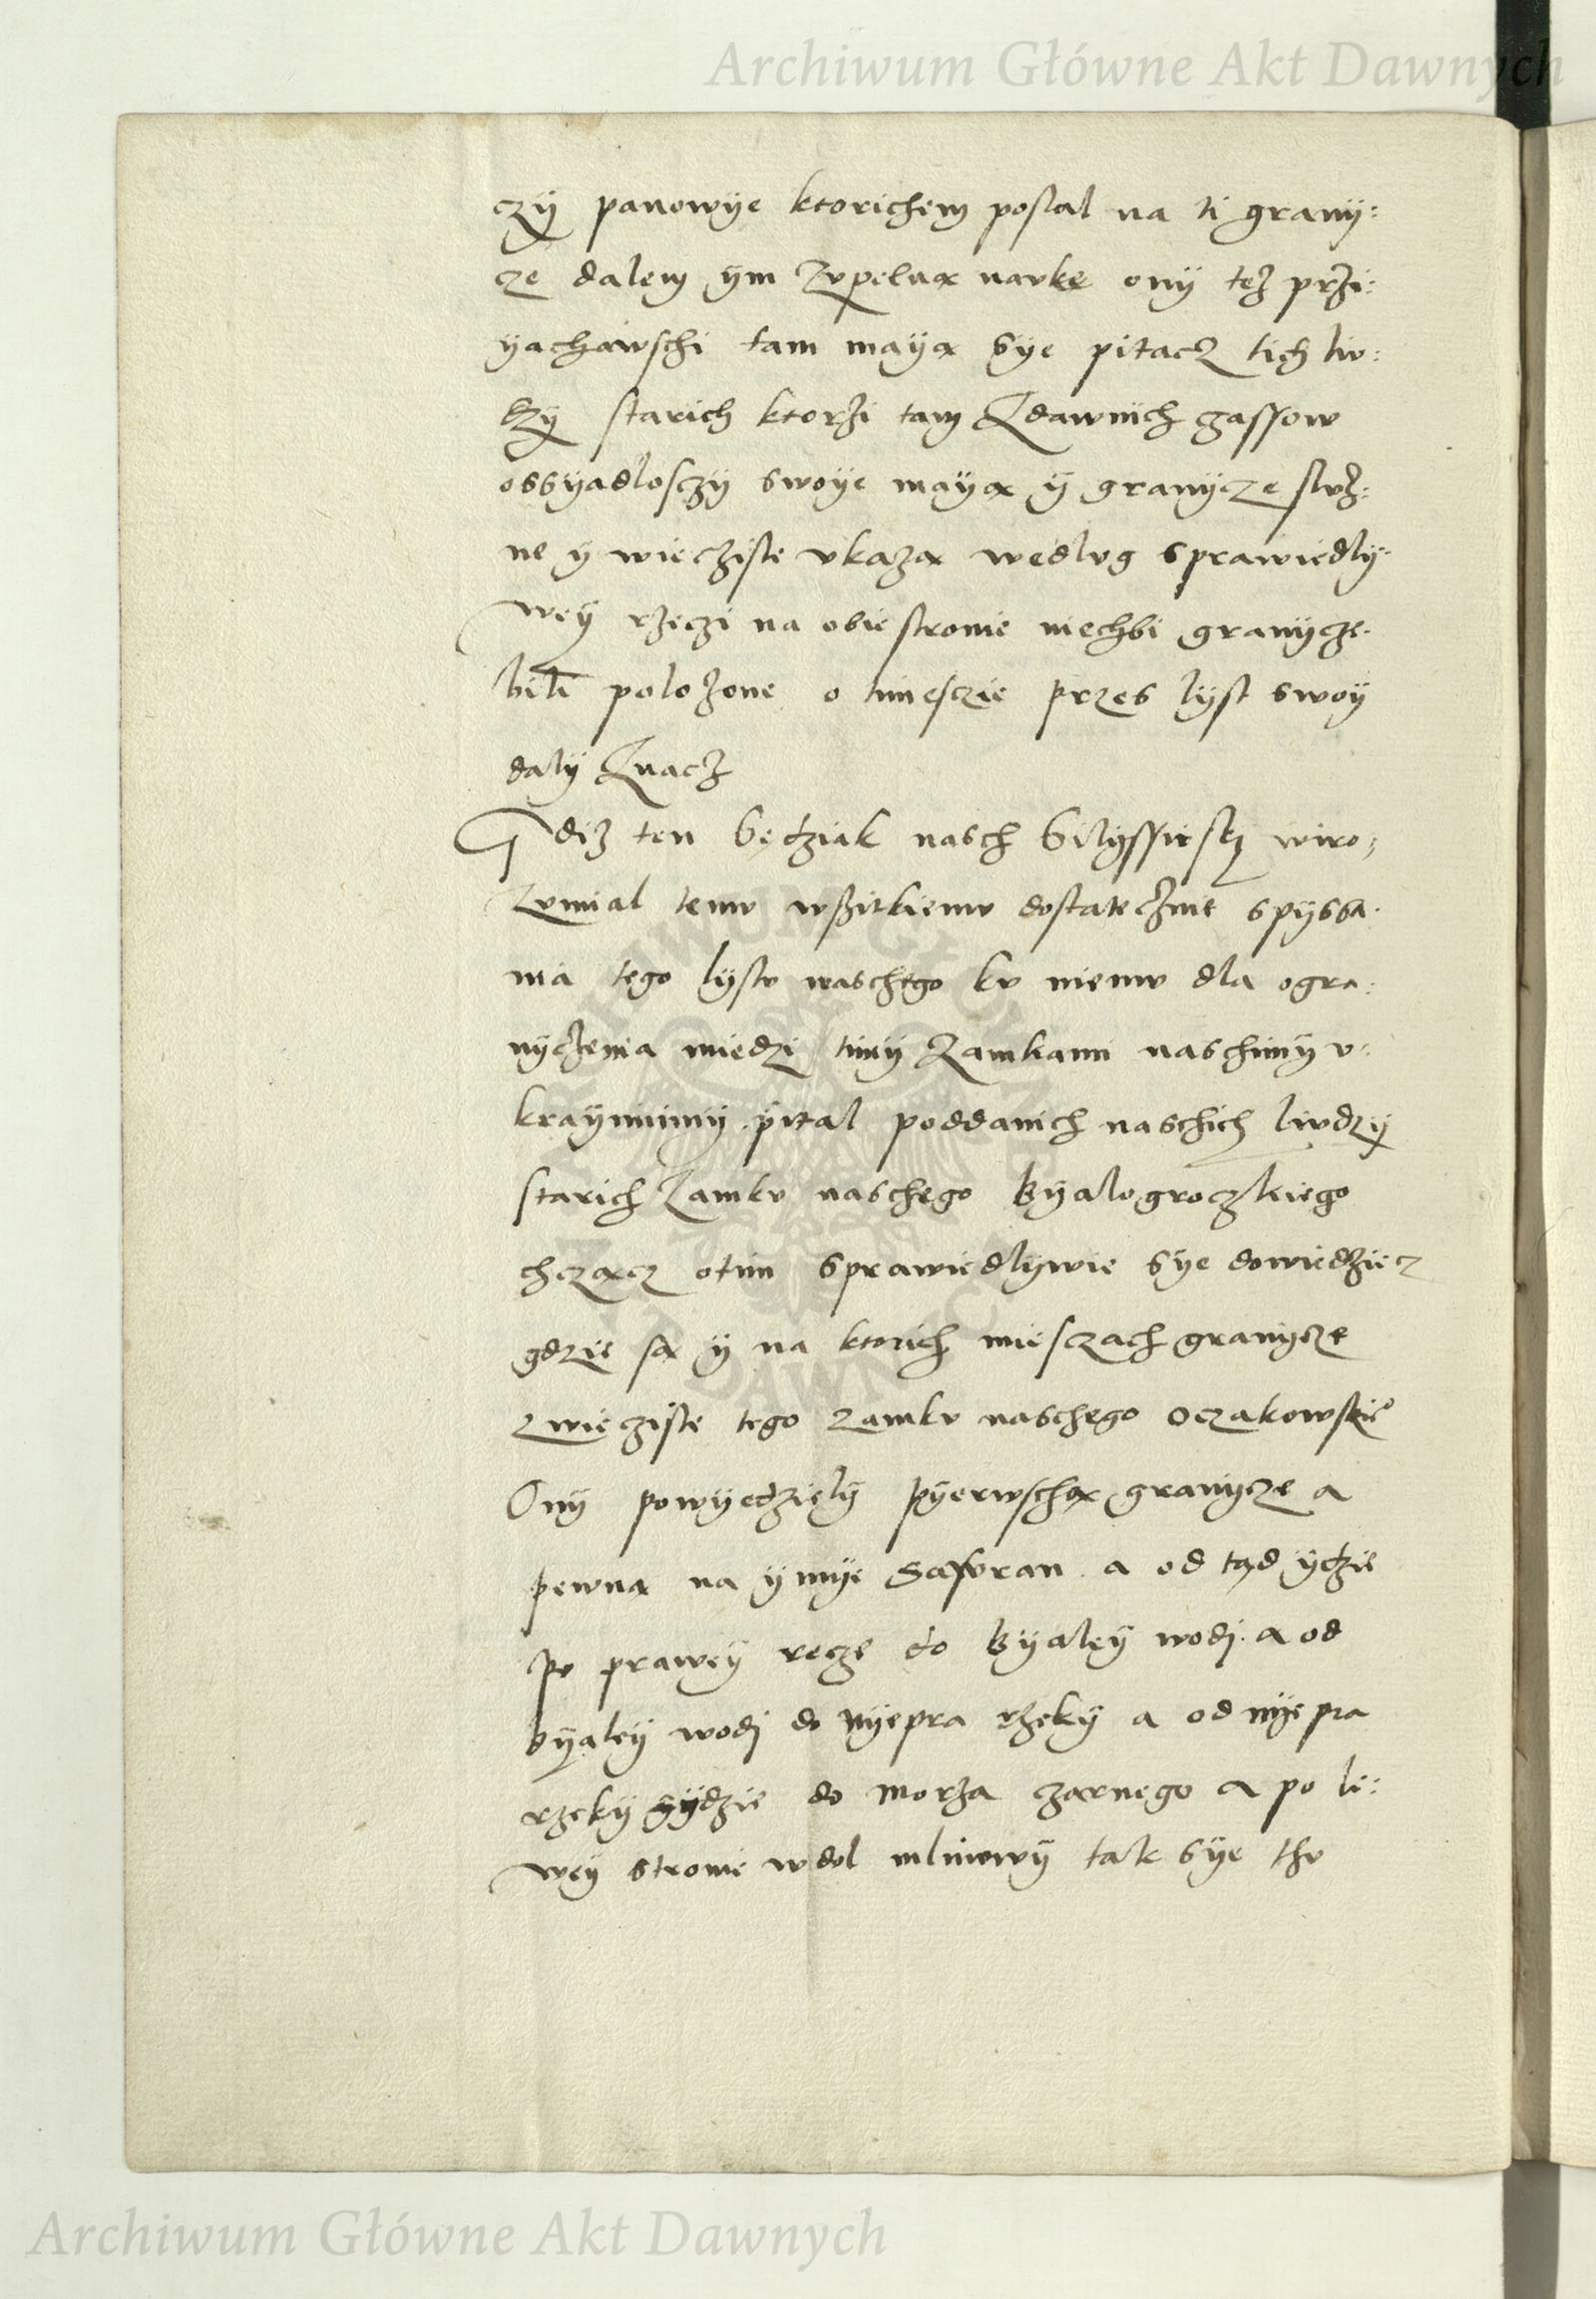 Archiwum Główne Akt Dawnych
czÿ panowÿe ktorichem poslal na ti granÿ:
cze dalem ÿm Zvpelna navke onÿ tez przi:
ÿachawschi tam maÿa sÿe pitacz tich lw:
dzÿ starich ktorzi tam Zdawnich czassow
ossÿadlosczÿ swoÿe maÿa ÿ granÿcze slvz:
ne ÿ wiecziste vkaza wedlvg sprawiedlÿ:
weÿ rzeczi na obie stronie niechbi granÿcze
bili polozone o tim esczie przes lÿst swoÿ
dalÿ Znacz
Gdiz ten Sędziak nasch wiro:
zvmial temv wszitkiemv dostatecznie spÿssa:
nia tego lÿstv waschego kv niemv dla ogra:
nÿczenia miedzi timÿ Zamkami naschimÿ v:
kraÿnnimÿ pital poddanich naschich lwdzÿ
starich Zamkv naschego Bÿalogroczkiego
chczacz otim sprawiedlÿwie sÿe dowiedziecz
gdzie sa ÿ na ktorich miesczach granÿcze
zwiecziste tego zamkv naschego oczakowskie
Onÿ powÿedzielÿ pÿerwscha granÿcze a
pewna na ÿmÿe Savran a od tąd ÿdzie
po praweÿ recze do Bÿaleÿ wodi a od
bÿaleÿ wodi do nÿepra rzekÿ a od nÿepra
rzekÿ ÿdzie do morza czarnego a po le:
weÿ stronie wdol mlinowÿ tak sÿe thv
Archiwum Główne Akt Dawnych